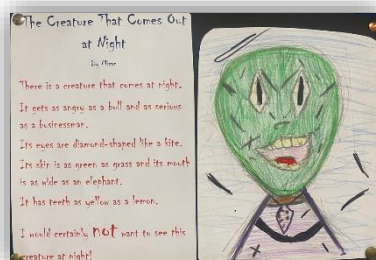 The Creature That Comes Out
at Night
There is a creature that comes at night.
It gets as angry as a bull and as serious
as a businessman.
Its eyes are diamond-shaped like a kite.
Its skin is as green as grass and its mouth
is as wide as an elephant.
It has teeth as yellow as a lemon.
I would certainly not want to see this
creature at night!